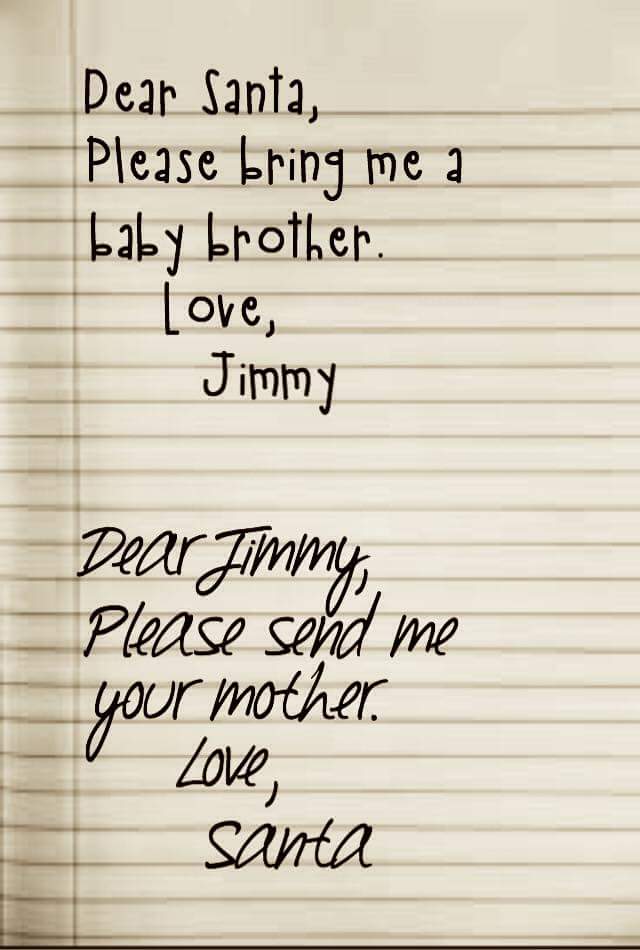 Dear Santa,
Please bring me a
baby brother.
Love,
Jimmy
Dear Jimmy,
Please send me
your mother.
Love,
Santa